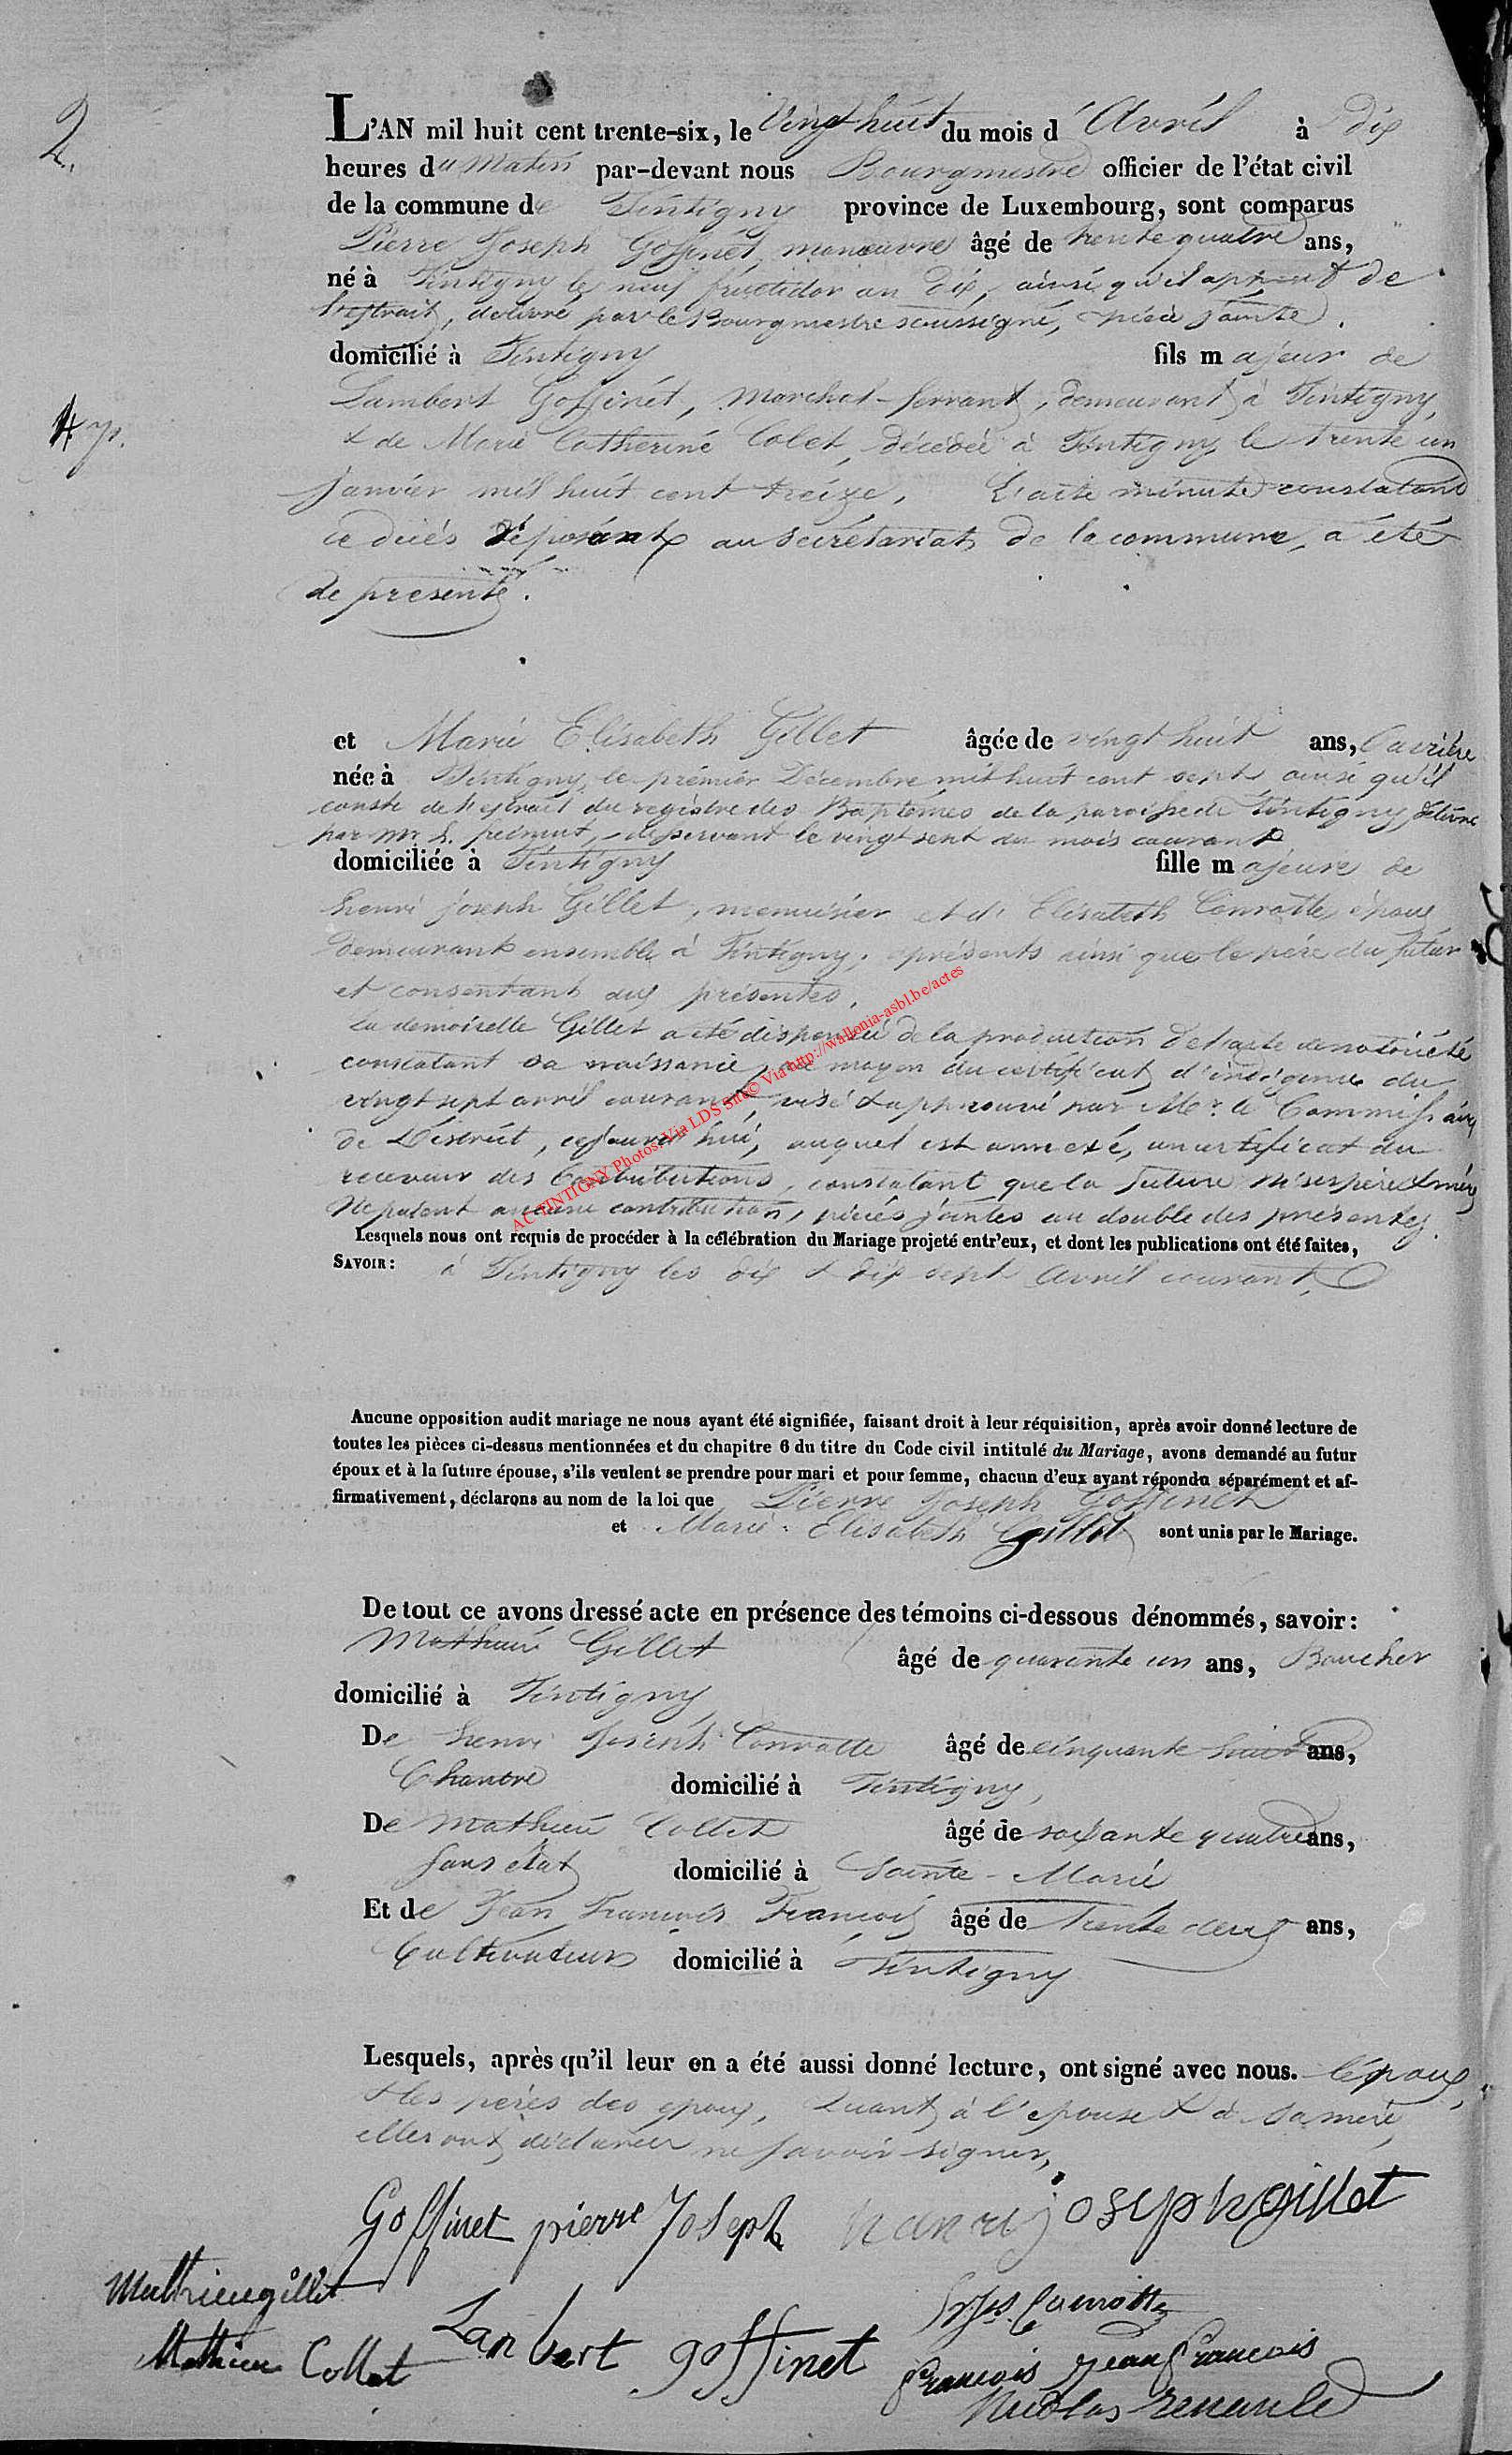 2.
L'AN mil huit cent trente-six, le Vingt huit du mois d'Avril à dix
heures du Matin par-devant nous Bourgmestre officier de l'état civil
de la commune de Tintigny province de Luxembourg, sont comparus
Pierre Joseph Goffinet, manœuvre âgé de trente quatre ans,
né à Tintigny le neuf fructidor an dix, ainsi qu'il apert de
l'extrait, délivré par le Bourgmestre soussigné, pièce jointe.
domicilié à Tintigny fils majeur de
Lambert Goffinet, Marchal-ferrant, demeurant à Tintigny,
& de Marie Catherine Colet, décédée à Tintigny le trente un
Janvier mil huit cent treize. L'acte minute constatant
ce décès déposant au secrétariat de la commune, a été
de présenté.
et Marie Elisabeth Gillet âgée de vingt huit ans,
née à Tintigny, le prémiér Décembre mil huit cent sept, ainsi qu'il
conste de l'extrait du registre des Baptêmes de la paroisse de Tintigny, délivré
par Mr. desservant le vingt sept du mois courant
domiciliée à Tintigny fille majeure de
henri joseph Gillet, menuisier et d'Elisabeth Conrotte, époux
demeurant ensemble à Tintigny, présents ainsi que le père du futur
et consentant aux présentes.
La demoiselle Gillet a été dispensée de la production de l'acte de notoriété
constatant sa naissance, au moyen du certificat d'indigence du
vingt sept avril courant, visé & approuvé par Mr. le Commissaire
de District, ce jourd'hui, auquel est annexé, un certificat du
receveur des Contributions, constatant que la future ni ses père & mère
ne paient aucune contribution, pièces jointes au double des présentes.
AC TINTIGNY Photos: Via LDS Site© Via http://wallonia-asbl.be/actes
Lesquels nous ont requis de procéder à la célébration du Mariage projeté entr'eux, et dont les publications ont été faites,
SAVOIR: à Tintigny les dix & dix sept Avril courant,
Aucune opposition audit mariage ne nous ayant été signifiée, faisant droit à leur réquisition, après avoir donné lecture de
toutes les pièces ci-dessus mentionnées et du chapitre 6 du titre du Code civil intitulé du Mariage, avons demandé au futur
époux et à la future épouse, s'ils veulent se prendre pour mari et pour femme, chacun d'eux ayant répondu séparément et af-
firmativement, déclarons au nom de la loi que Pierre Joseph Goffinet
et Marie Elisabeth Gillet sont unis par le Mariage.
De tout ce avons dressé acte en présence des témoins ci-dessous dénommés, savoir:
Mathieu Gillet âgé de quarante un ans, Boucher
domicilié à Tintigny
De henri Joseph Conrotte âgé de cinquante huit ans,
Chantre domicilié à Tintigny,
De Mathieu Collet âgé de soixante quatre ans,
sans état domicilié à Sainte-Marie
Et de Jean François François âgé de trente deux ans,
Cultivateur domicilié à Tintigny
Lesquels, après qu'il leur en a été aussi donné lecture, ont signé avec nous. l'époux,
& les pères des époux, Quant à l'épouse & à sa mère,
elles ont déclarées ne savoir signer,
Goffinet pierre Joseph hanri josephgillet
Mathieugillet
Mathieu Collet Lanbert goffinet
Conrotte
François Jean françois
Nicolas